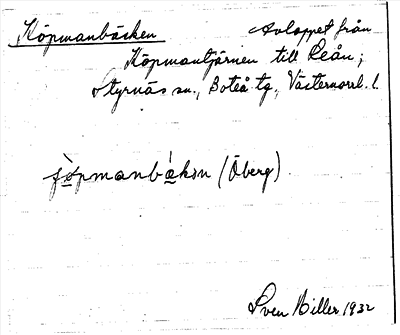 Köpmanbäcken Avloppet från
Köpmantjärnen till Leån;
Styrnäs sn., Boteå tg., Västernorrl. l.
fø̀pmanbǽkɘn (Öberg)
Sven Biller 1932